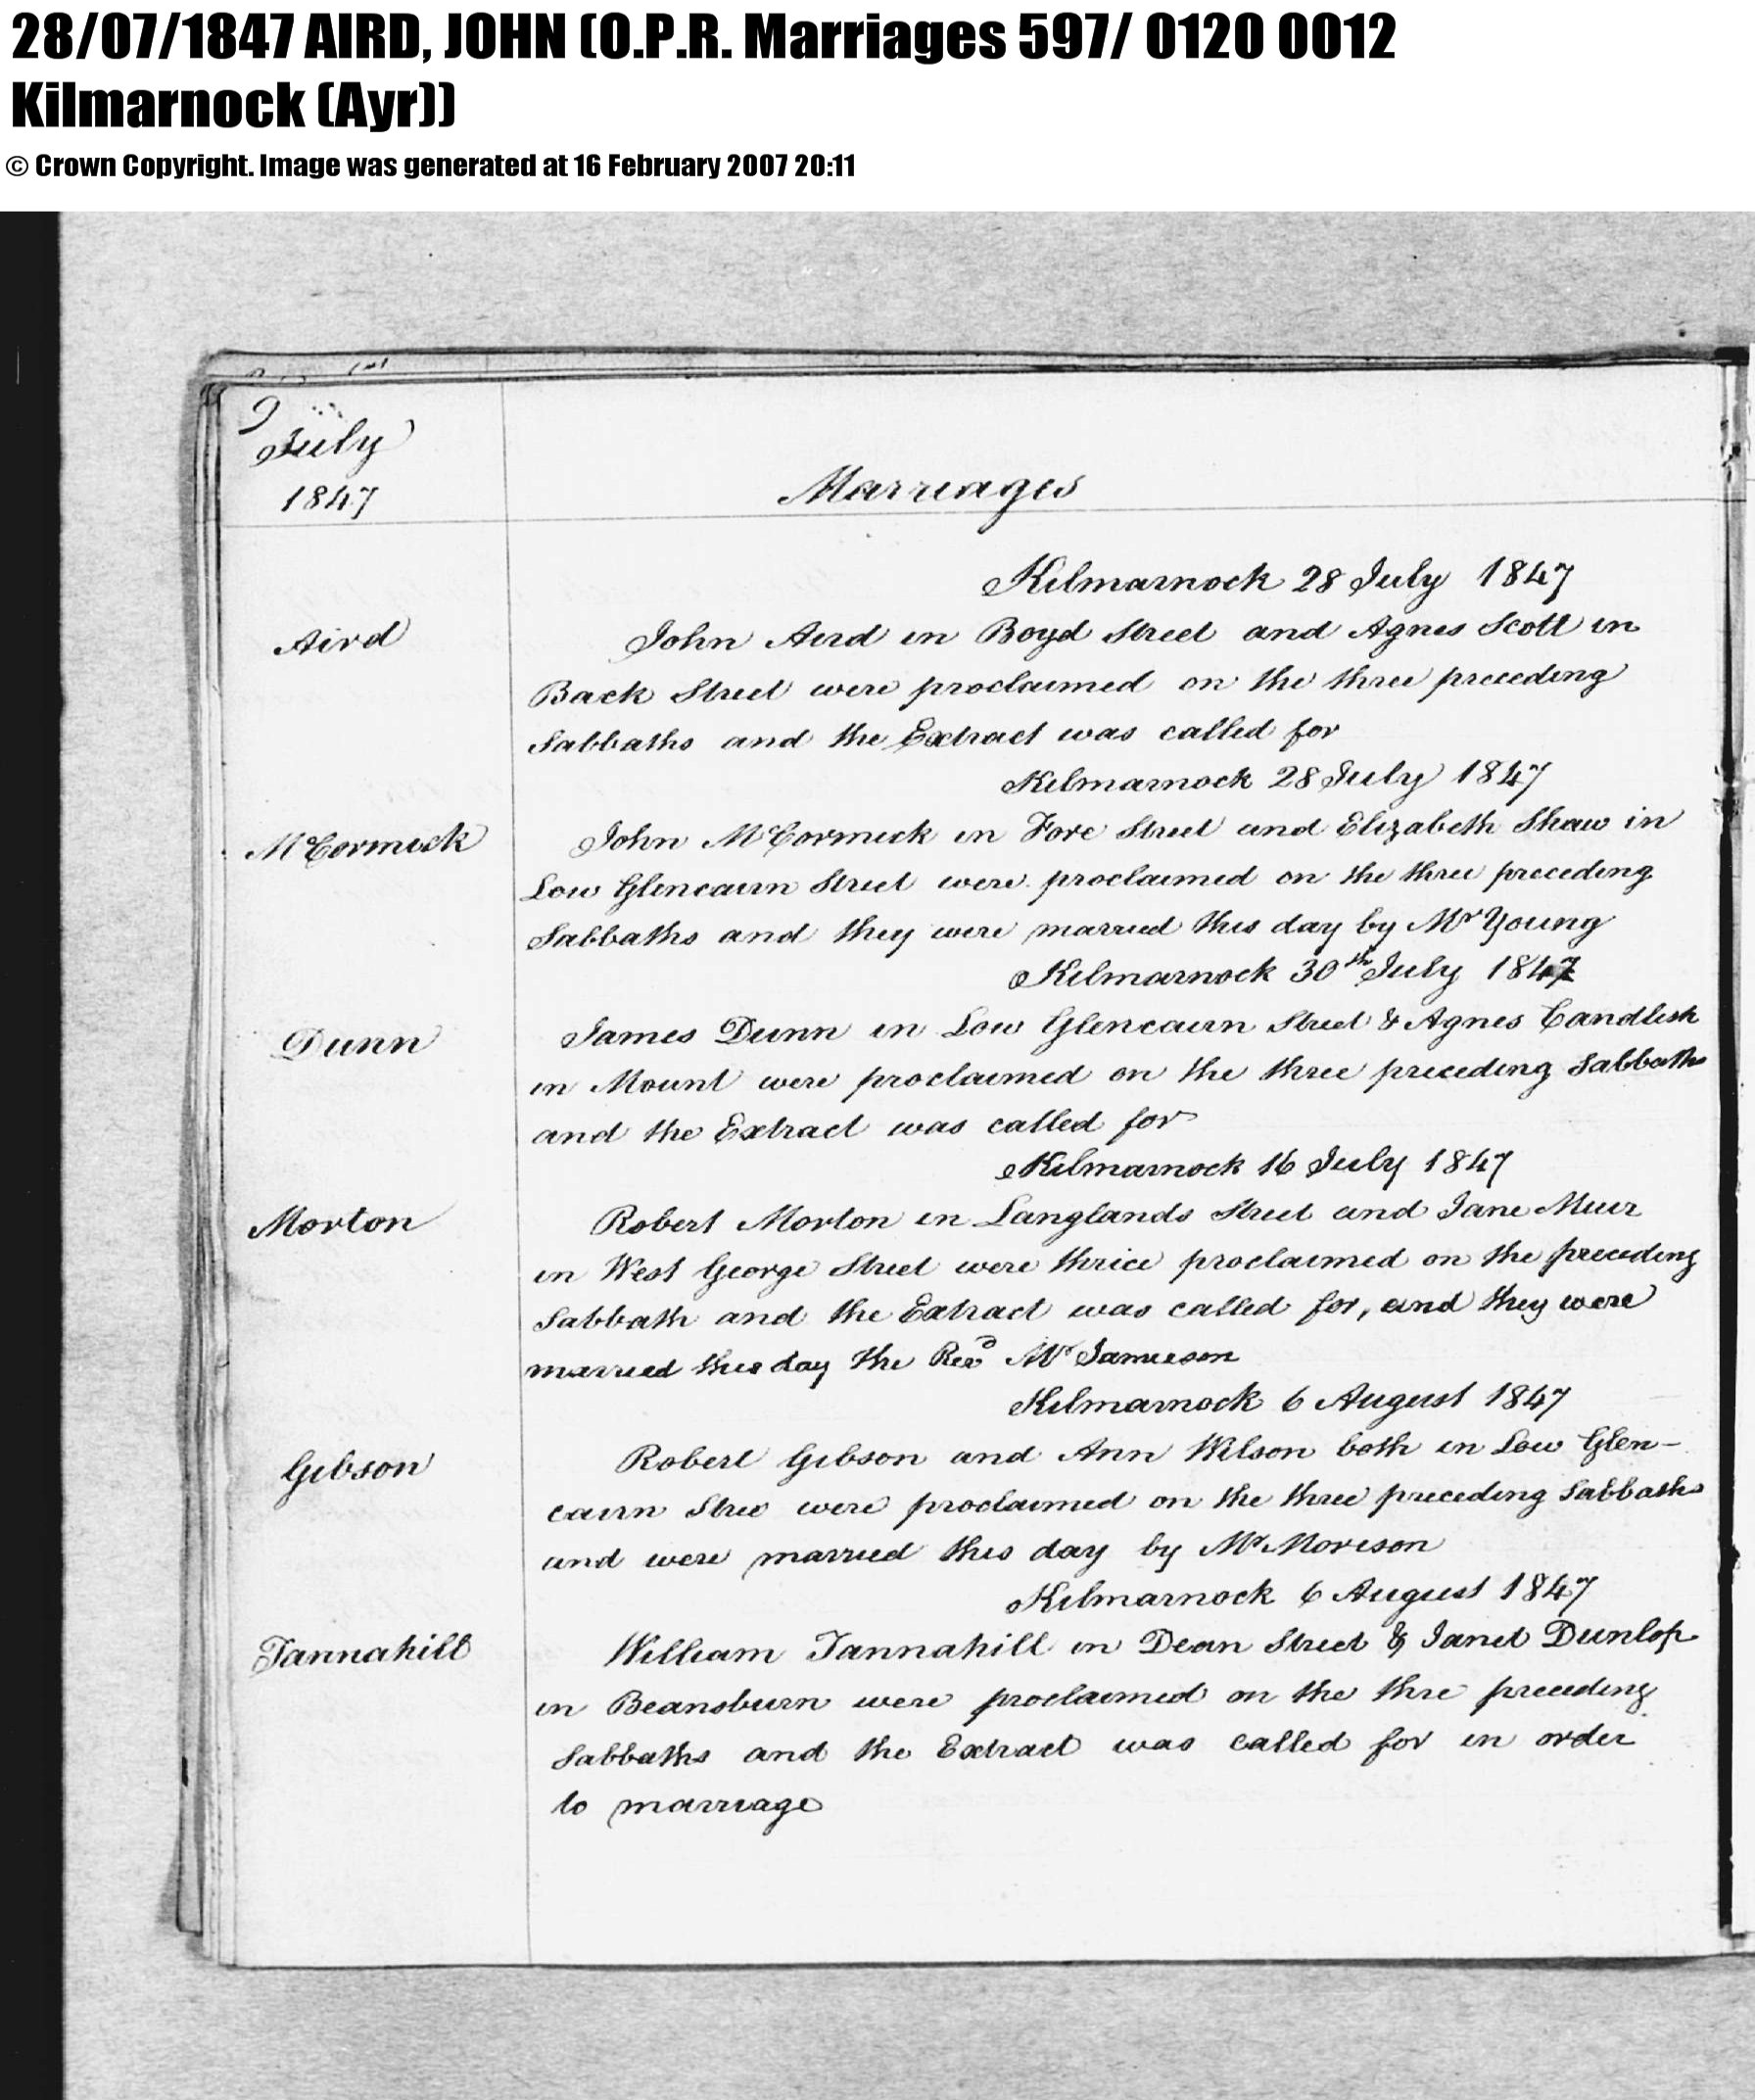 28/07/1847 AIRD, JOHN (O.P.R. Marriages 597/ 0120 0012
Kilmarnock (Ayr))
© Crown Copyright. Image was generated at 16 February 2007 20:11
9
July
1847
Marriages
Kilmarnock 28 July 1847
Aird
John Aird in Boyd Street and Agnes Scott in
Back Street were proclaimed on the three preceding
Sabbaths and the Extract was called for
Kilmarnock 28 July 1847
McCormick
John McCormick in Fore Street and Elizabeth Shaw in
Low Glencairn Street were proclaimed on the three preceding
Sabbaths and they were married this day by Mr Young
Kilmarnock 30th July 1847
Dunn
James Dunn in Low Glencairn Street & Agnes Candlish
in Mount were proclaimed on the three preceding Sabbaths
and the Extract was called for
Kilmarnock 16 July 1847
Morton
Robert Morton in Langlands Street and Jane Muir
in West George Street were thrice proclaimed on the preceding
Sabbath and the Extract was called for, and they were
married this day the Revd Mr Jamieson
Kilmarnock 6 August 1847
Gibson
Robert Gibson and Ann Wilson both in Low Glen-
cairn Stree were proclaimed on the three preceding Sabbaths
and were married this day by Mr Morison
Kilmarnock 6 August 1847
Tannahill
William Tannahill in Dean Street & Janet Dunlop
in Beansburn were proclaimed on the thre preceding
Sabbaths and the Extract was called for in order
to marriage